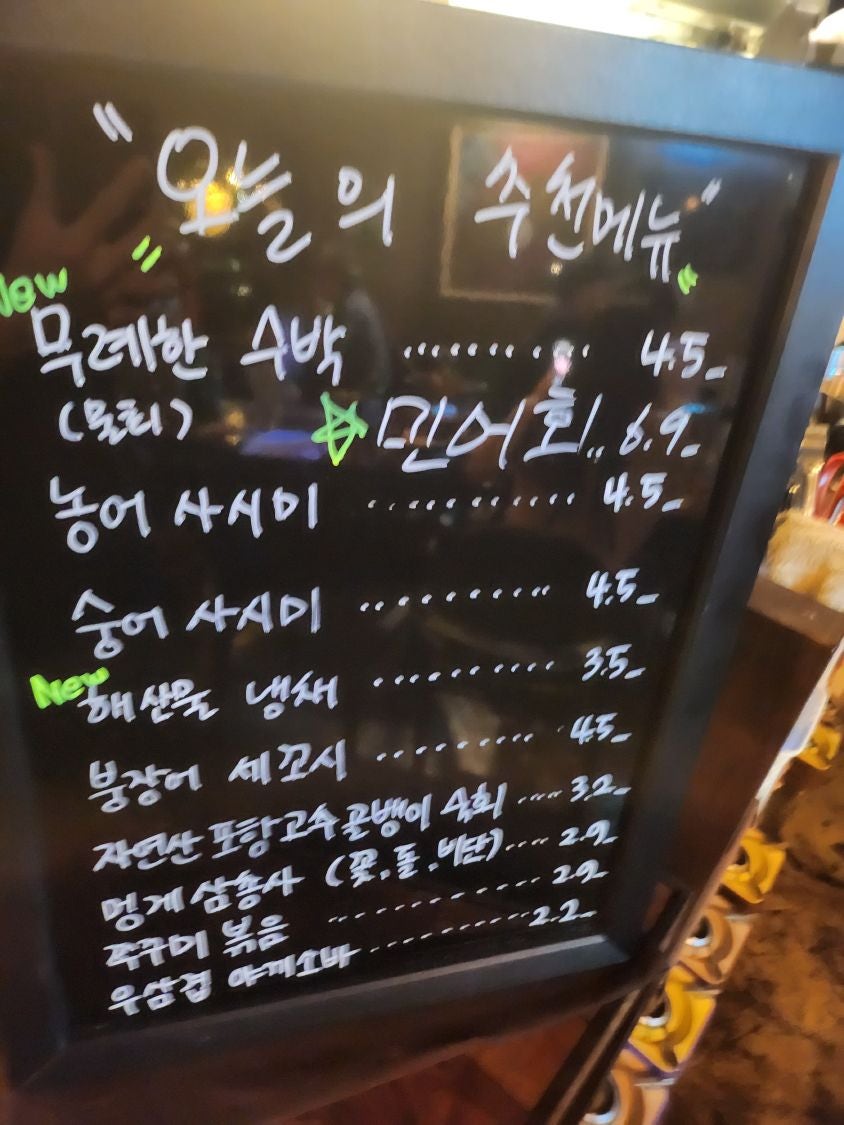 "오늘의 추천메뉴"
New
무례한 수박 .......... 4.5-
(물회) ☆ 민어회.. 6.9-
농어 사시미 ............ 4.5-
숭어 사시미 ........... 4.5-
New
해산물 냉채 .......... 3.5-
붕장어 세꼬시 .......... 4.5-
자연산 포항고수골뱅이 숙회 .... 3.2-
멍게삼총사 (꽃, 돌, 비단).... 2.9-
쭈구미 볶음 ............ 2.9-
우삼겹 야끼소바 ............ 2.2-